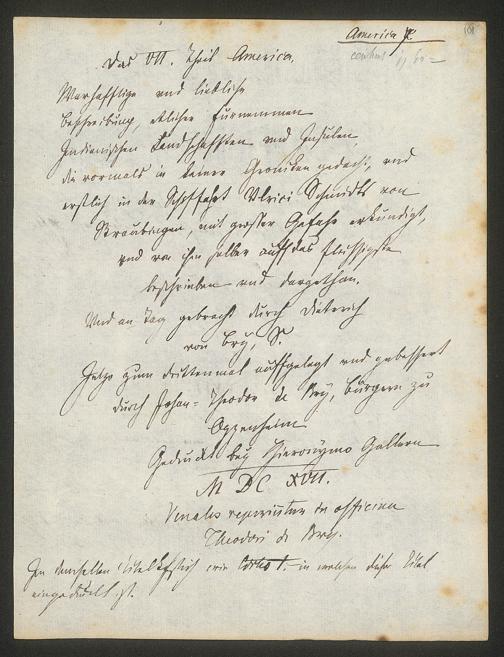 America
Das VII. Theil America.
Warhafftige und liebliche
Beschreibung, etlicher fürnemmen
Indianischen Landschafften und Insulen,
die vormals in keiner Croniken gedacht, und
erstlich in der Schiffart Ulrici Schmidts von
Straubingen, mit grosser Gefahr erkündigt,
und von ihm selber auff das fleissigste
beschrieben und dargethan.
Und an Tag gebracht durch Dieterich
von Bry, S.
Jetzo zum drittenmal auffgelegt und gebessert
durch Johan-Theodor de Bry, Bürgern zu
Oppenheim
Gedruckt bey Hieronymo Gallern
M DC XVII.
Venales reperiuntur in officina
Theodori de Bry.
In demselben Titelkupfer wie in welchen dieser Titel
eingedruckt ist.